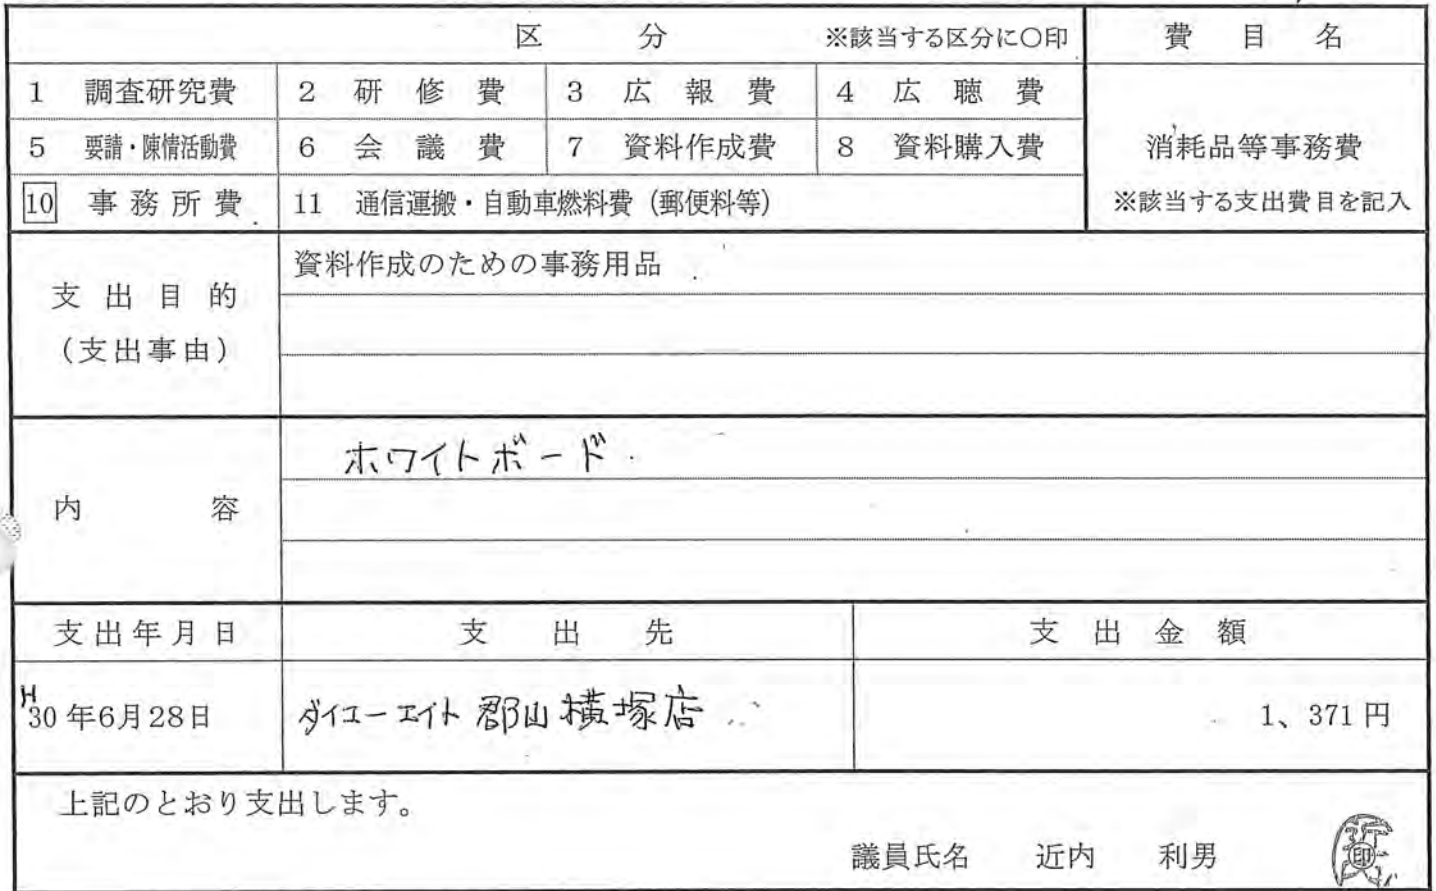 区 分 ※該当する区分に〇印 費目名
1 調査研究費 2 研修費 3 広報費 4 広聴費
5 要請・陳情活動費 6 会議費 7 資料作成費 8 資料購入費 消耗品等事務費
10 事務所費 11 通信運搬・自動車燃料費（郵便料等） ※該当する支出費目を記入
支出目的
（支出事由）
資料作成のための事務用品
内容
ホワイトボード
支出年月日 支出先 支出金額
H30年6月28日 ダイユーエイト 郡山横塚店 1、371円
上記のとおり支出します。
議員氏名 近内 利男 印